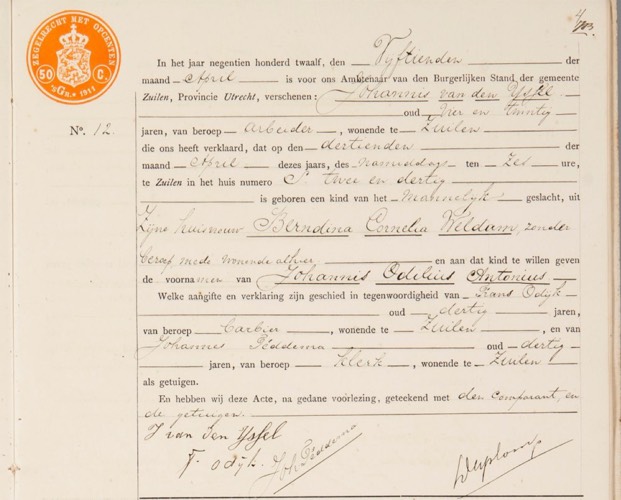 4/103.
ZEGELRECHT MET OPCENTEN
50 C.
'sGR.* 1911
In het jaar negentien honderd twaalf, den Vyftienden der
maand April is voor ons Ambtenaar van den Burgerlijken Stand der gemeente
Zuilen, Provincie Utrecht, verschenen: Johannis van den Yssel
oud Vier en twintig
No. 12.
jaren, van beroep arbeider, wonende te Zuilen
die ons heeft verklaard, dat op den dertienden
der maand April dezes jaars, des namiddags ten Zes ure,
te Zuilen in het huis numero S twee en dertig
is geboren een kind van het Mannelyk geslacht, uit
Zijne huisvrouw Berndina Cornelia Weldam, zonder
beroep mede wonende alhier, en aan dat kind te willen geven
de voornamen van Johannis Odilius Antonius
Welke aangifte en verklaring zijn geschied in tegenwoordigheid van Frans Odyk
oud dertig jaren,
van beroep barbier, wonende te Zuilen, en van
Johannes Péddema oud dertig
jaren, van beroep Klerk, wonende te Zuilen
als getuigen.
En hebben wij deze Acte, na gedane voorlezing, geteekend met den Comparant, en
de getuigen.
J van den Yssel
F. odijk. Joh Péddema